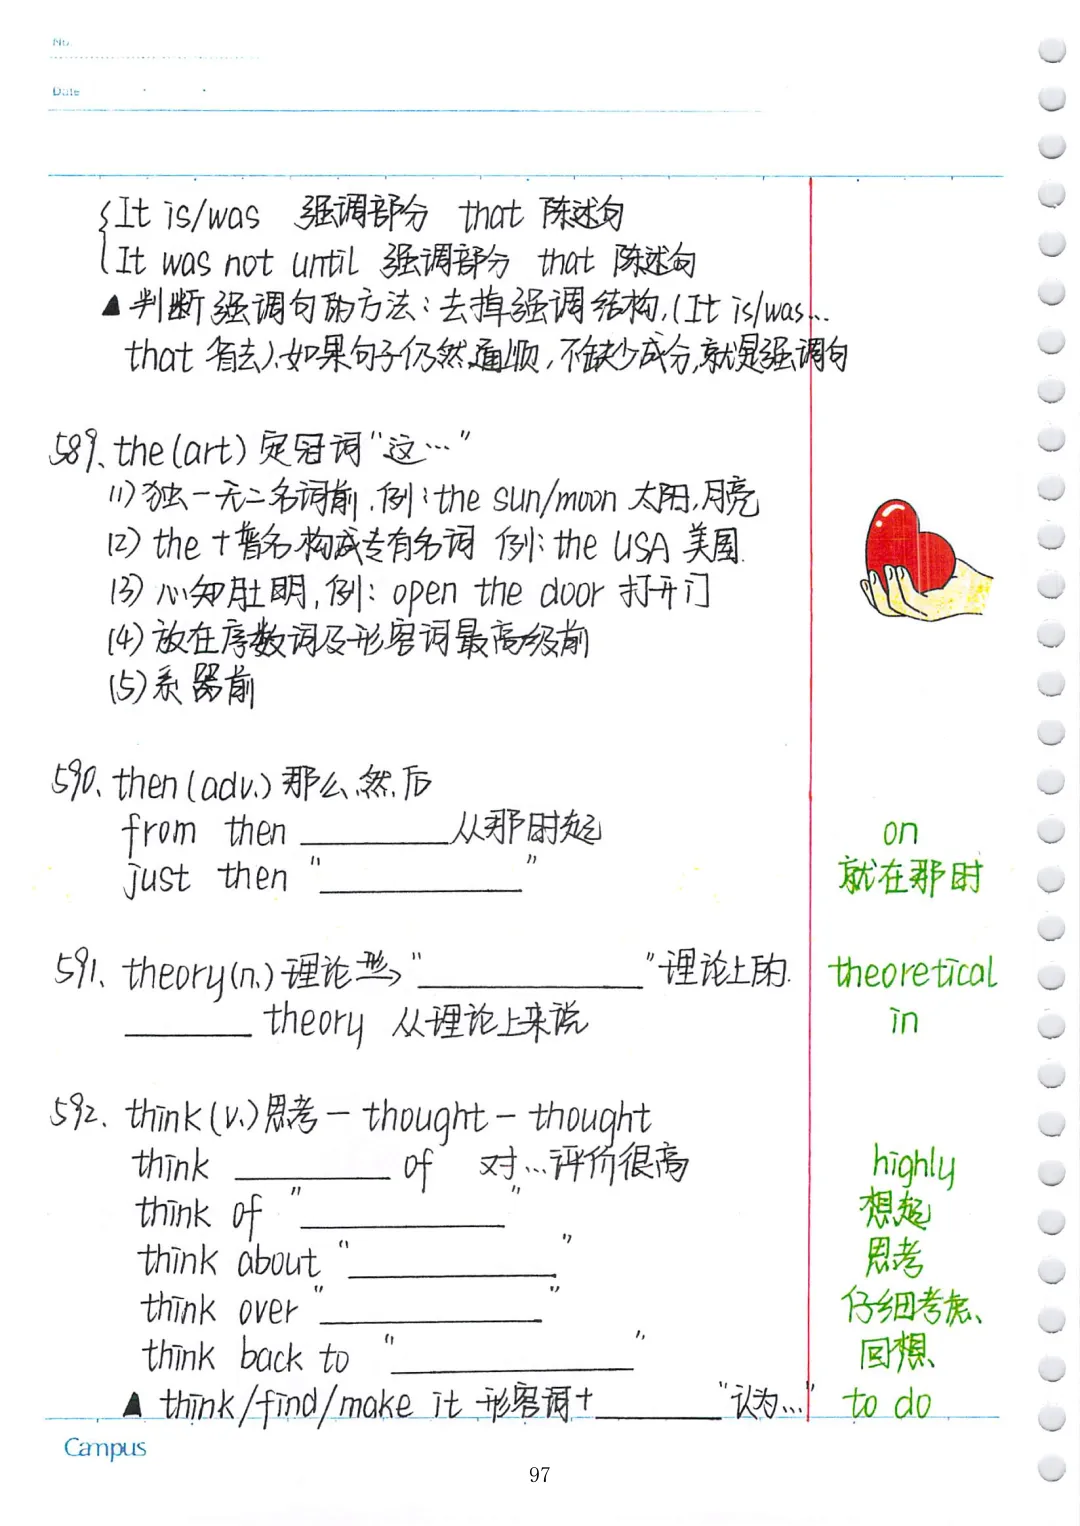 No.
Date
It is/was 强调部分 that 陈述句
It was not until 强调部分 that 陈述句
▲判断强调句的方法:去掉强调结构,(It is/was...
that 省去),如果句子仍然通顺,不缺少成分,就是强调句
589、the(art)定冠词"这…"
(1)独一无二名词前,例:the sun/moon 太阳,月亮
(2)the+普名构成专有名词 例:the USA 美国.
(3)心知肚明,例:open the door 打开门
(4)放在序数词及形容词最高级前
(5)乐器前
590、then(adv.)那么,然后
from then ________从那时起 on
just then "________" 就在那时
591、theory(n.)理论 形→"________"理论上的. theoretical
________ theory 从理论上来说 in
592、think(v.)思考-thought-thought
think ________ of 对...评价很高 highly
think of "________" 想起
think about "________" 思考
think over "________" 仔细考虑、
think back to "________" 回想、
▲ think/find/make it 形容词+________"认为..." to do
Campus
97